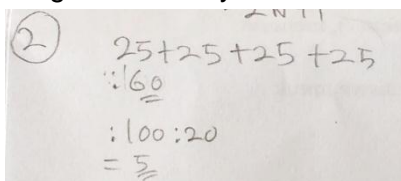 ②
25+25+25+25
:160
:100:20
= 5